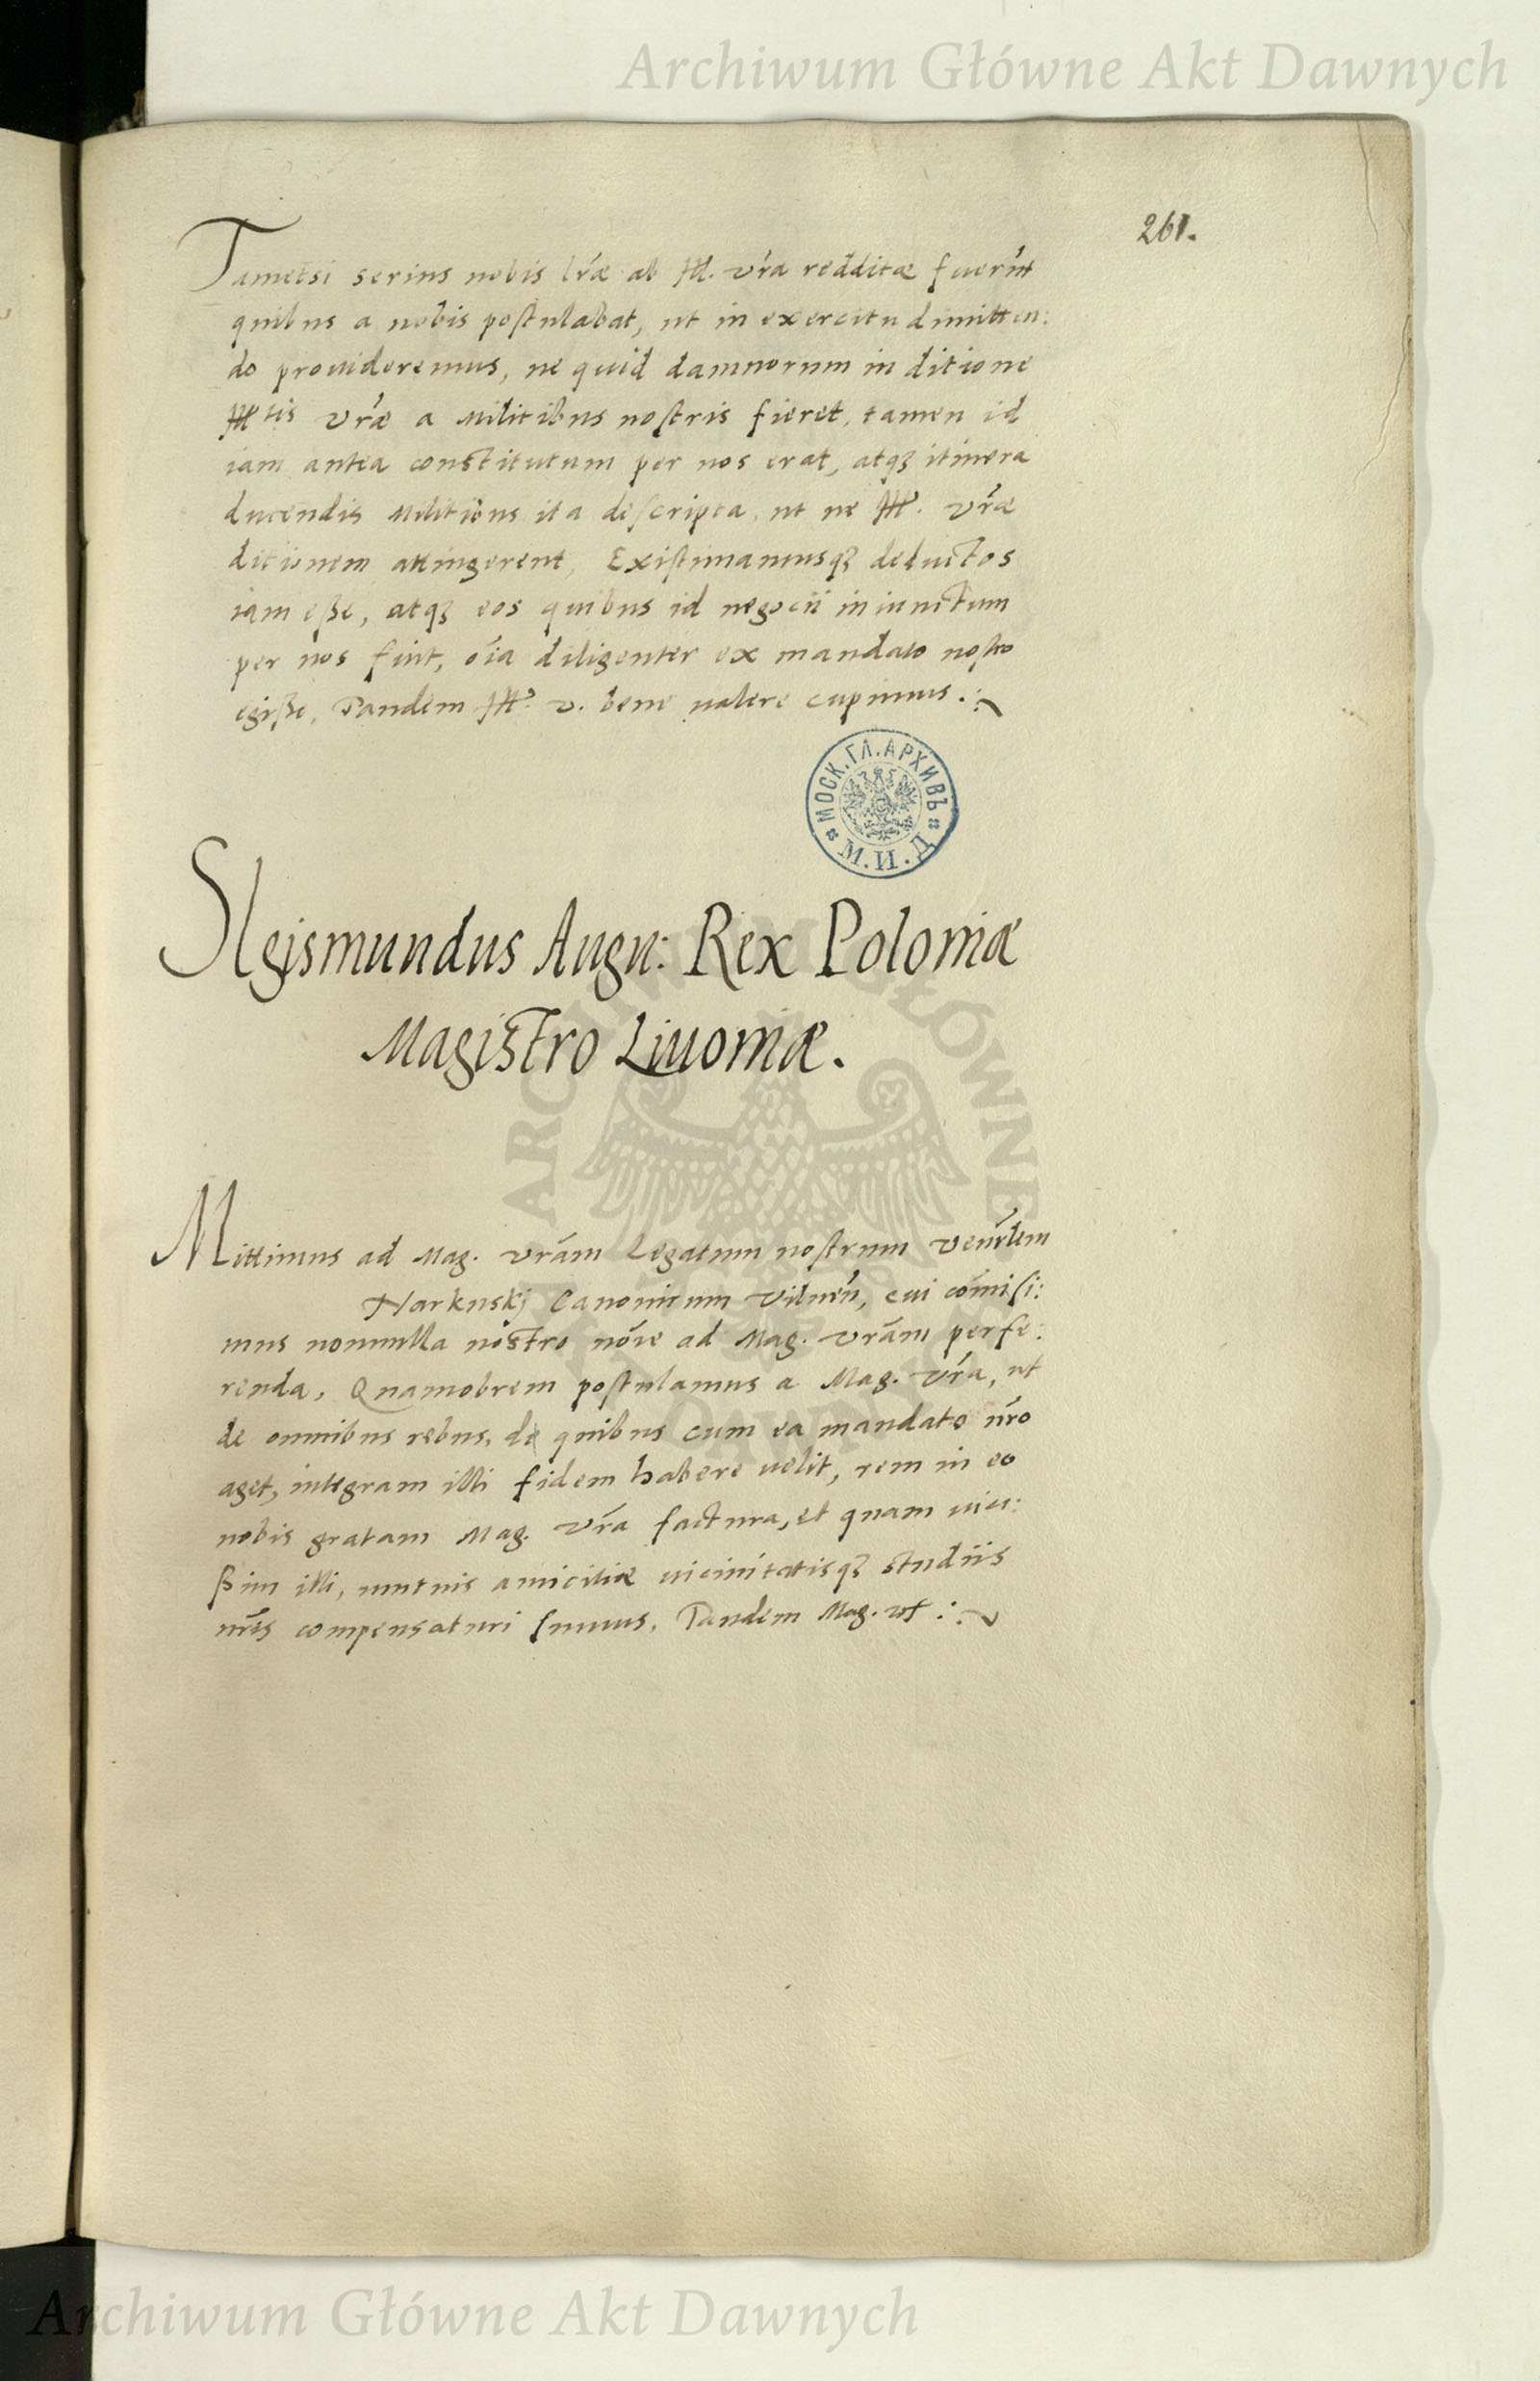 Archiwum Główne Akt Dawnych
261.
Tametsi serius nobis lr̃æ ab Ill. vr̃a redditæ fuerũt
quibus a nobis postulabat, ut in exercitu dimitten:
do prouideremus, ne quid damnorum in ditione
Ill tis vr̃æ a Militibus nostris fieret, tamen id
iam antea constitutum per nos erat, atqꝫ itinera
ducendis Militibus ita descripta, ut ne Ill. vr̃æ
ditionem attingerent, Existimamusqꝫ deductos
iam eße, atqꝫ eos quibus id negocii iniunctum
per nos fuit, oĩa diligenter ex mandato nostro
egiße, Tandem Ill. v. bene ualere cupimus.
МОСК.ГЛ.АРХИВЪ
М.И.Д
SIgismundus Augu: Rex Poloniæ
Magistro Liuoniæ.
Mittimus ad Mag. vr̃am Legatum nostrum Venr̃lem
Narkuskj Canonicum Vilneñ, cui com̃isi:
mus nonnulla nostro nõie ad Mag. vr̃am perfe:
renda, Quamobrem postulamus a Mag. vr̃a, ut
de omnibus rebus, de quibus cum ea mandato nr̃o
aget, integram illi fidem habere uelit, rem in eo
nobis gratam Mag. vr̃a factura, et quam uicis:
ßim illi, mutuis amicitiæ uicinitatisqꝫ studiis
nr̃is compensaturi sumus, Tandem Mag. ut
ARCHIWUM GŁÓWNE AKT DAWNYCH
Archiwum Główne Akt Dawnych